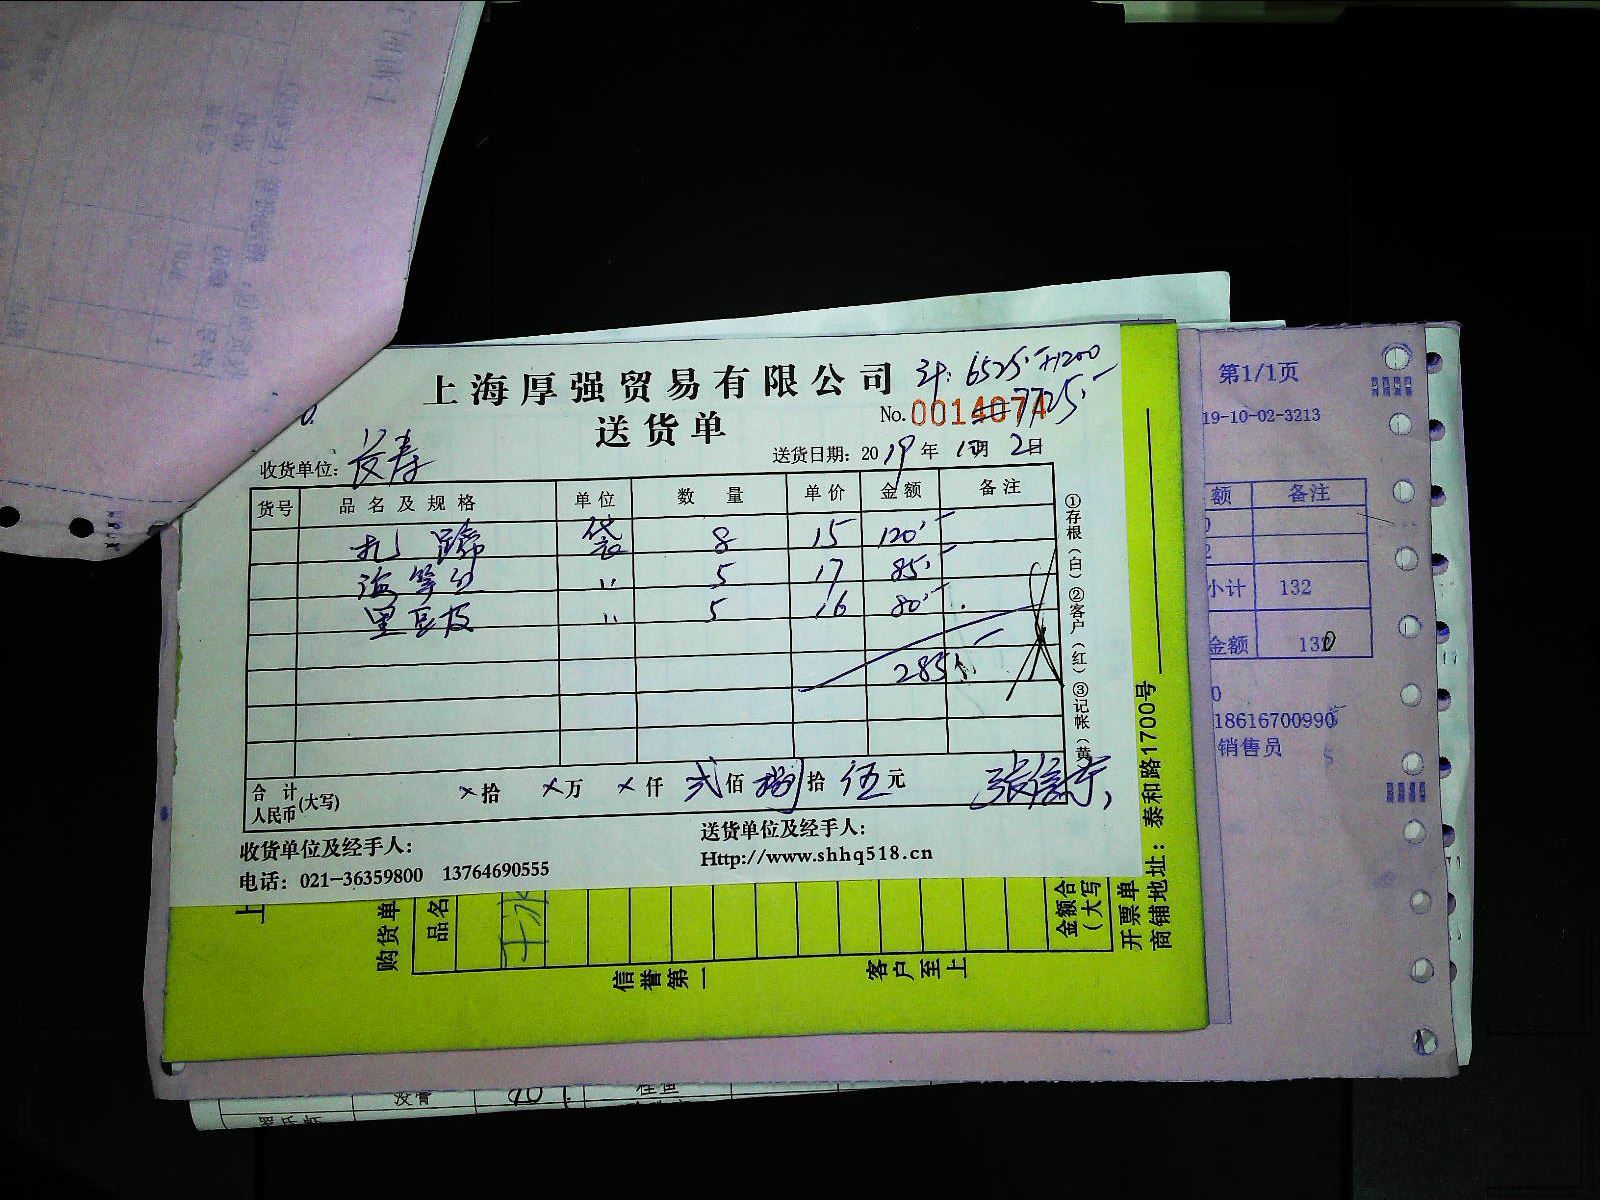 上海厚强贸易有限公司
计: 6525.- +1200
7725.-
送货单
No. 0014074
收货单位: 长寿
送货日期: 2019年10月2日
货号 品名及规格 单位 数量 单价 金额 备注
扎蹄 袋 8 15 120.-
海笋丝 〃 5 17 85.-
黑豆皮 〃 5 16 80.-
285.-
①存根(白)②客户(红)③记帐(黄
合计人民币(大写) ×拾 ×万 ×仟 贰佰 捌拾 伍元
收货单位及经手人:
送货单位及经手人:
电话: 021-36359800 13764690555
Http://www.shhq518.cn
第1/1页
19-10-02-3213
额 备注
小计 132
金额 130
18616700990
销售员
购货单
品名
金额合
(大写
信誉第一
客户至上
开票单
商铺地址: 泰和路1700号